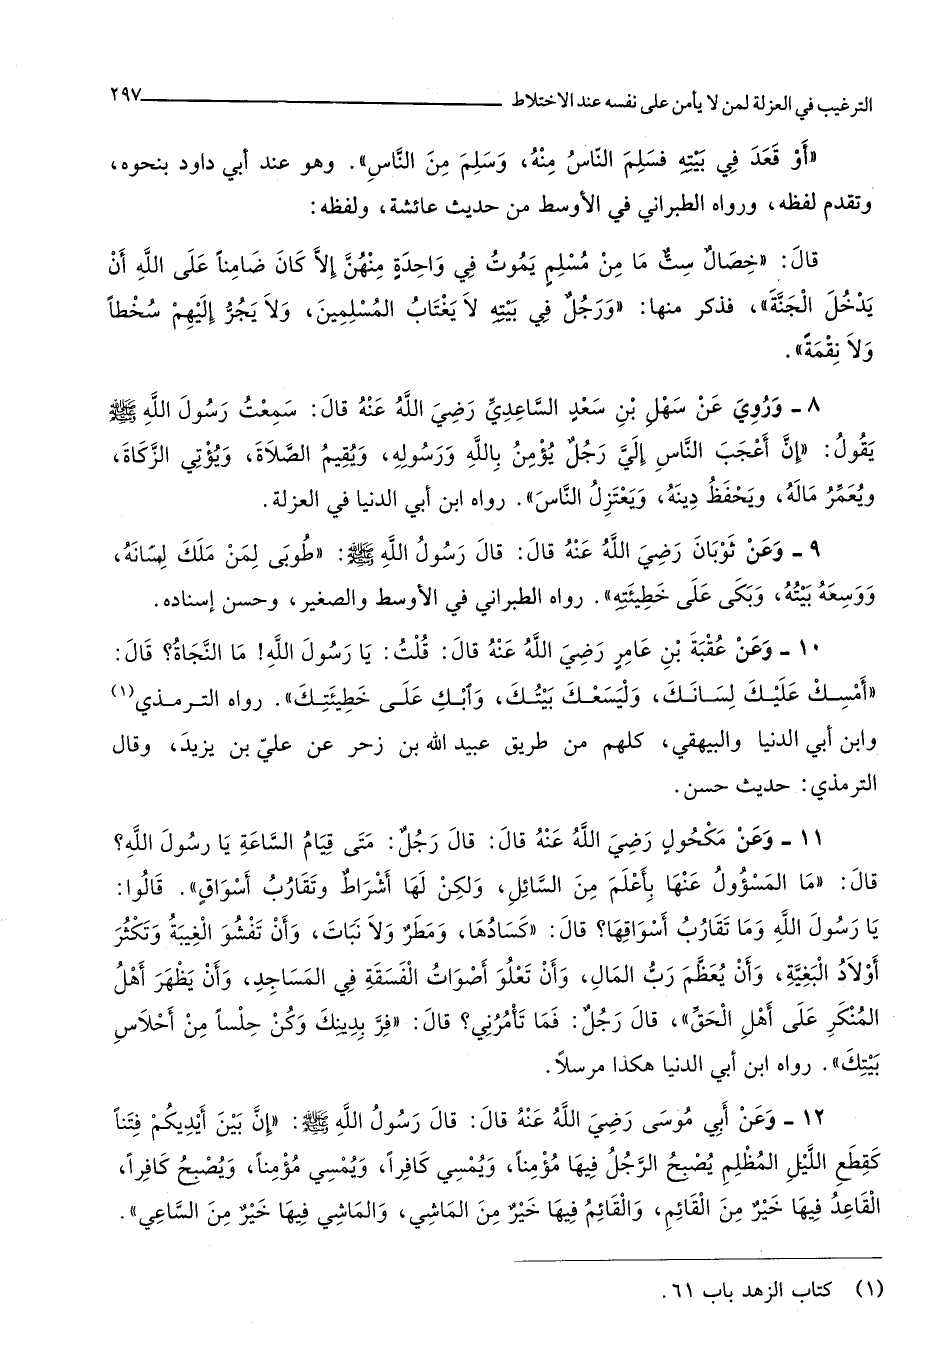 الترغيب في العزلة لمن لا يأمن على نفسه عند الاختلاط ٢٩٧
«أَوْ قَعَدَ فِي بَيْتِهِ فَسَلِمَ النَّاسُ مِنْهُ، وَسَلِمَ مِنَ النَّاسِ». وهو عند أبي داود بنحوه،
وتقدم لفظه، ورواه الطبراني في الأوسط من حديث عائشة، ولفظه:
قَالَ: «خِصَالٌ سِتٌّ مَا مِنْ مُسْلِمٍ يَمُوتُ فِي وَاحِدَةٍ مِنْهُنَّ إِلاَّ كَانَ ضَامِناً عَلَى اللَّهِ أَنْ
يَدْخُلَ الْجَنَّةَ»، فذكر منها: «وَرَجُلٌ فِي بَيْتِهِ لاَ يَغْتَابُ المُسْلِمِينَ، وَلاَ يَجُرُّ إِلَيْهِمْ سُخْطاً
وَلاَ نِقْمَةً».
٨ - وَرُوِيَ عَنْ سَهْلِ بْنِ سَعْدٍ السَّاعِدِيِّ رَضِيَ اللَّهُ عَنْهُ قَالَ: سَمِعْتُ رَسُولَ اللَّهِ ﷺ
يَقُولُ: «إِنَّ أَعْجَبَ النَّاسِ إِلَيَّ رَجُلٌ يُؤْمِنُ بِاللَّهِ وَرَسُولِهِ، وَيُقِيمُ الصَّلاَةَ، وَيُؤْتِي الزَّكَاةَ،
وَيُعَمِّرُ مَالَهُ، وَيَحْفَظُ دِينَهُ، وَيَعْتَزِلُ النَّاسَ». رواه ابن أبي الدنيا في العزلة.
٩ - وَعَنْ ثَوْبَانَ رَضِيَ اللَّهُ عَنْهُ قَالَ: قَالَ رَسُولُ اللَّهِ ﷺ: «طُوبَى لِمَنْ مَلَكَ لِسَانَهُ،
وَوَسِعَهُ بَيْتُهُ، وَبَكَى عَلَى خَطِيئَتِهِ». رواه الطبراني في الأوسط والصغير، وحسن إسناده.
١٠ - وَعَنْ عُقْبَةَ بْنِ عَامِرٍ رَضِيَ اللَّهُ عَنْهُ قَالَ: قُلْتُ: يَا رَسُولَ اللَّهِ! مَا النَّجَاةُ؟ قَالَ:
«أَمْسِكْ عَلَيْكَ لِسَانَكَ، وَلْيَسَعْكَ بَيْتُكَ، وَٱبْكِ عَلَى خَطِيئَتِكَ». رواه الترمذي(١)
وابن أبي الدنيا والبيهقي، كلهم من طريق عبيد الله بن زحر عن عليّ بن يزيدَ، وقال
الترمذي: حديث حسن.
١١ - وَعَنْ مَكْحُولٍ رَضِيَ اللَّهُ عَنْهُ قَالَ: قَالَ رَجُلٌ: مَتَى قِيَامُ السَّاعَةِ يَا رسُولَ اللَّهِ؟
قَالَ: «مَا المَسْؤُولُ عَنْهَا بِأَعْلَمَ مِنَ السَّائِلِ، وَلكِنْ لَهَا أَشْرَاطٌ وَتَقَارُبُ أَسْوَاقٍ». قَالُوا:
يَا رَسُولَ اللَّهِ وَمَا تَقَارُبُ أَسْوَاقِهَا؟ قَالَ: «كَسَادُهَا، وَمَطَرٌ وَلاَ نَبَاتَ، وَأَنْ تَفْشُوَ الْغِيبَةُ وَتَكْثُرَ
أَوْلاَدُ الْبَغِيَّةِ، وَأَنْ يُعَظَّمَ رَبُّ المَالِ، وَأَنْ تَعْلُوَ أَصْوَاتُ الْفَسَقَةِ فِي المَسَاجِدِ، وَأَنْ يَظْهَرَ أَهْلُ
المُنْكَرِ عَلَى أَهْلِ الْحَقِّ»، قَالَ رَجُلٌ: فَمَا تَأْمُرُنِي؟ قَالَ: «فِرَّ بِدِينِكَ وَكُنْ حِلْساً مِنْ أَحْلاَسِ
بَيْتِكَ». رواه ابن أبي الدنيا هكذا مرسلاً.
١٢ - وَعَنْ أَبِي مُوسَى رَضِيَ اللَّهُ عَنْهُ قَالَ: قَالَ رَسُولُ اللَّهِ ﷺ: «إِنَّ بَيْنَ أَيْدِيكُمْ فِتَناً
كَقِطَعِ اللَّيْلِ المُظْلِمِ يُصْبِحُ الرَّجُلُ فِيهَا مُؤْمِناً، وَيُمْسِي كَافِراً، وَيُمْسِي مُؤْمِناً، وَيُصْبِحُ كَافِراً،
الْقَاعِدُ فِيهَا خَيْرٌ مِنَ الْقَائِمِ، وَالْقَائِمُ فِيهَا خَيْرٌ مِنَ المَاشِي، وَالمَاشِي فِيهَا خَيْرٌ مِنَ السَّاعِي».
(١) كتاب الزهد باب ٦١.